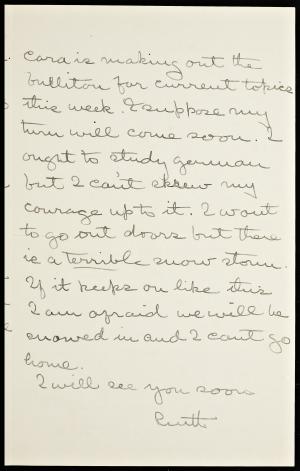 Cara is making out the
bulliton for current topics
this week. I suppose my
turn will come soon. I
ought to study german
but I can't skrew my
courage up to it. I want
to go out doors but there
is a terrible snow storm.
If it keeps on like this
I am afraid we will be
snowed in and I cant go
home.
I will see you soon
Ruth